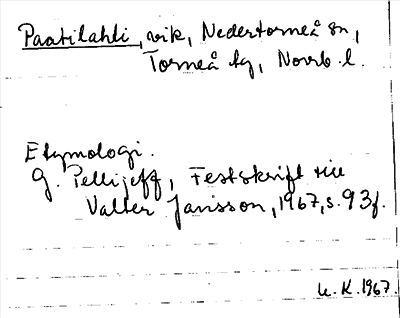 Paatilahti, vik, Nedertorneå sn,
Torneå tg, Norrb. l.
Etymologi.
G. Pellijeff, Festskrift till
Valter Jansson, 1967, s. 93f.
U. K. 1967.